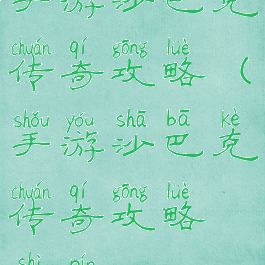 手游沙巴克
chuán qí gōng lüè
传奇攻略（
shǒu yóu shā bā kè
手游沙巴克
chuán qí gōng lüè
传奇攻略
shì pín